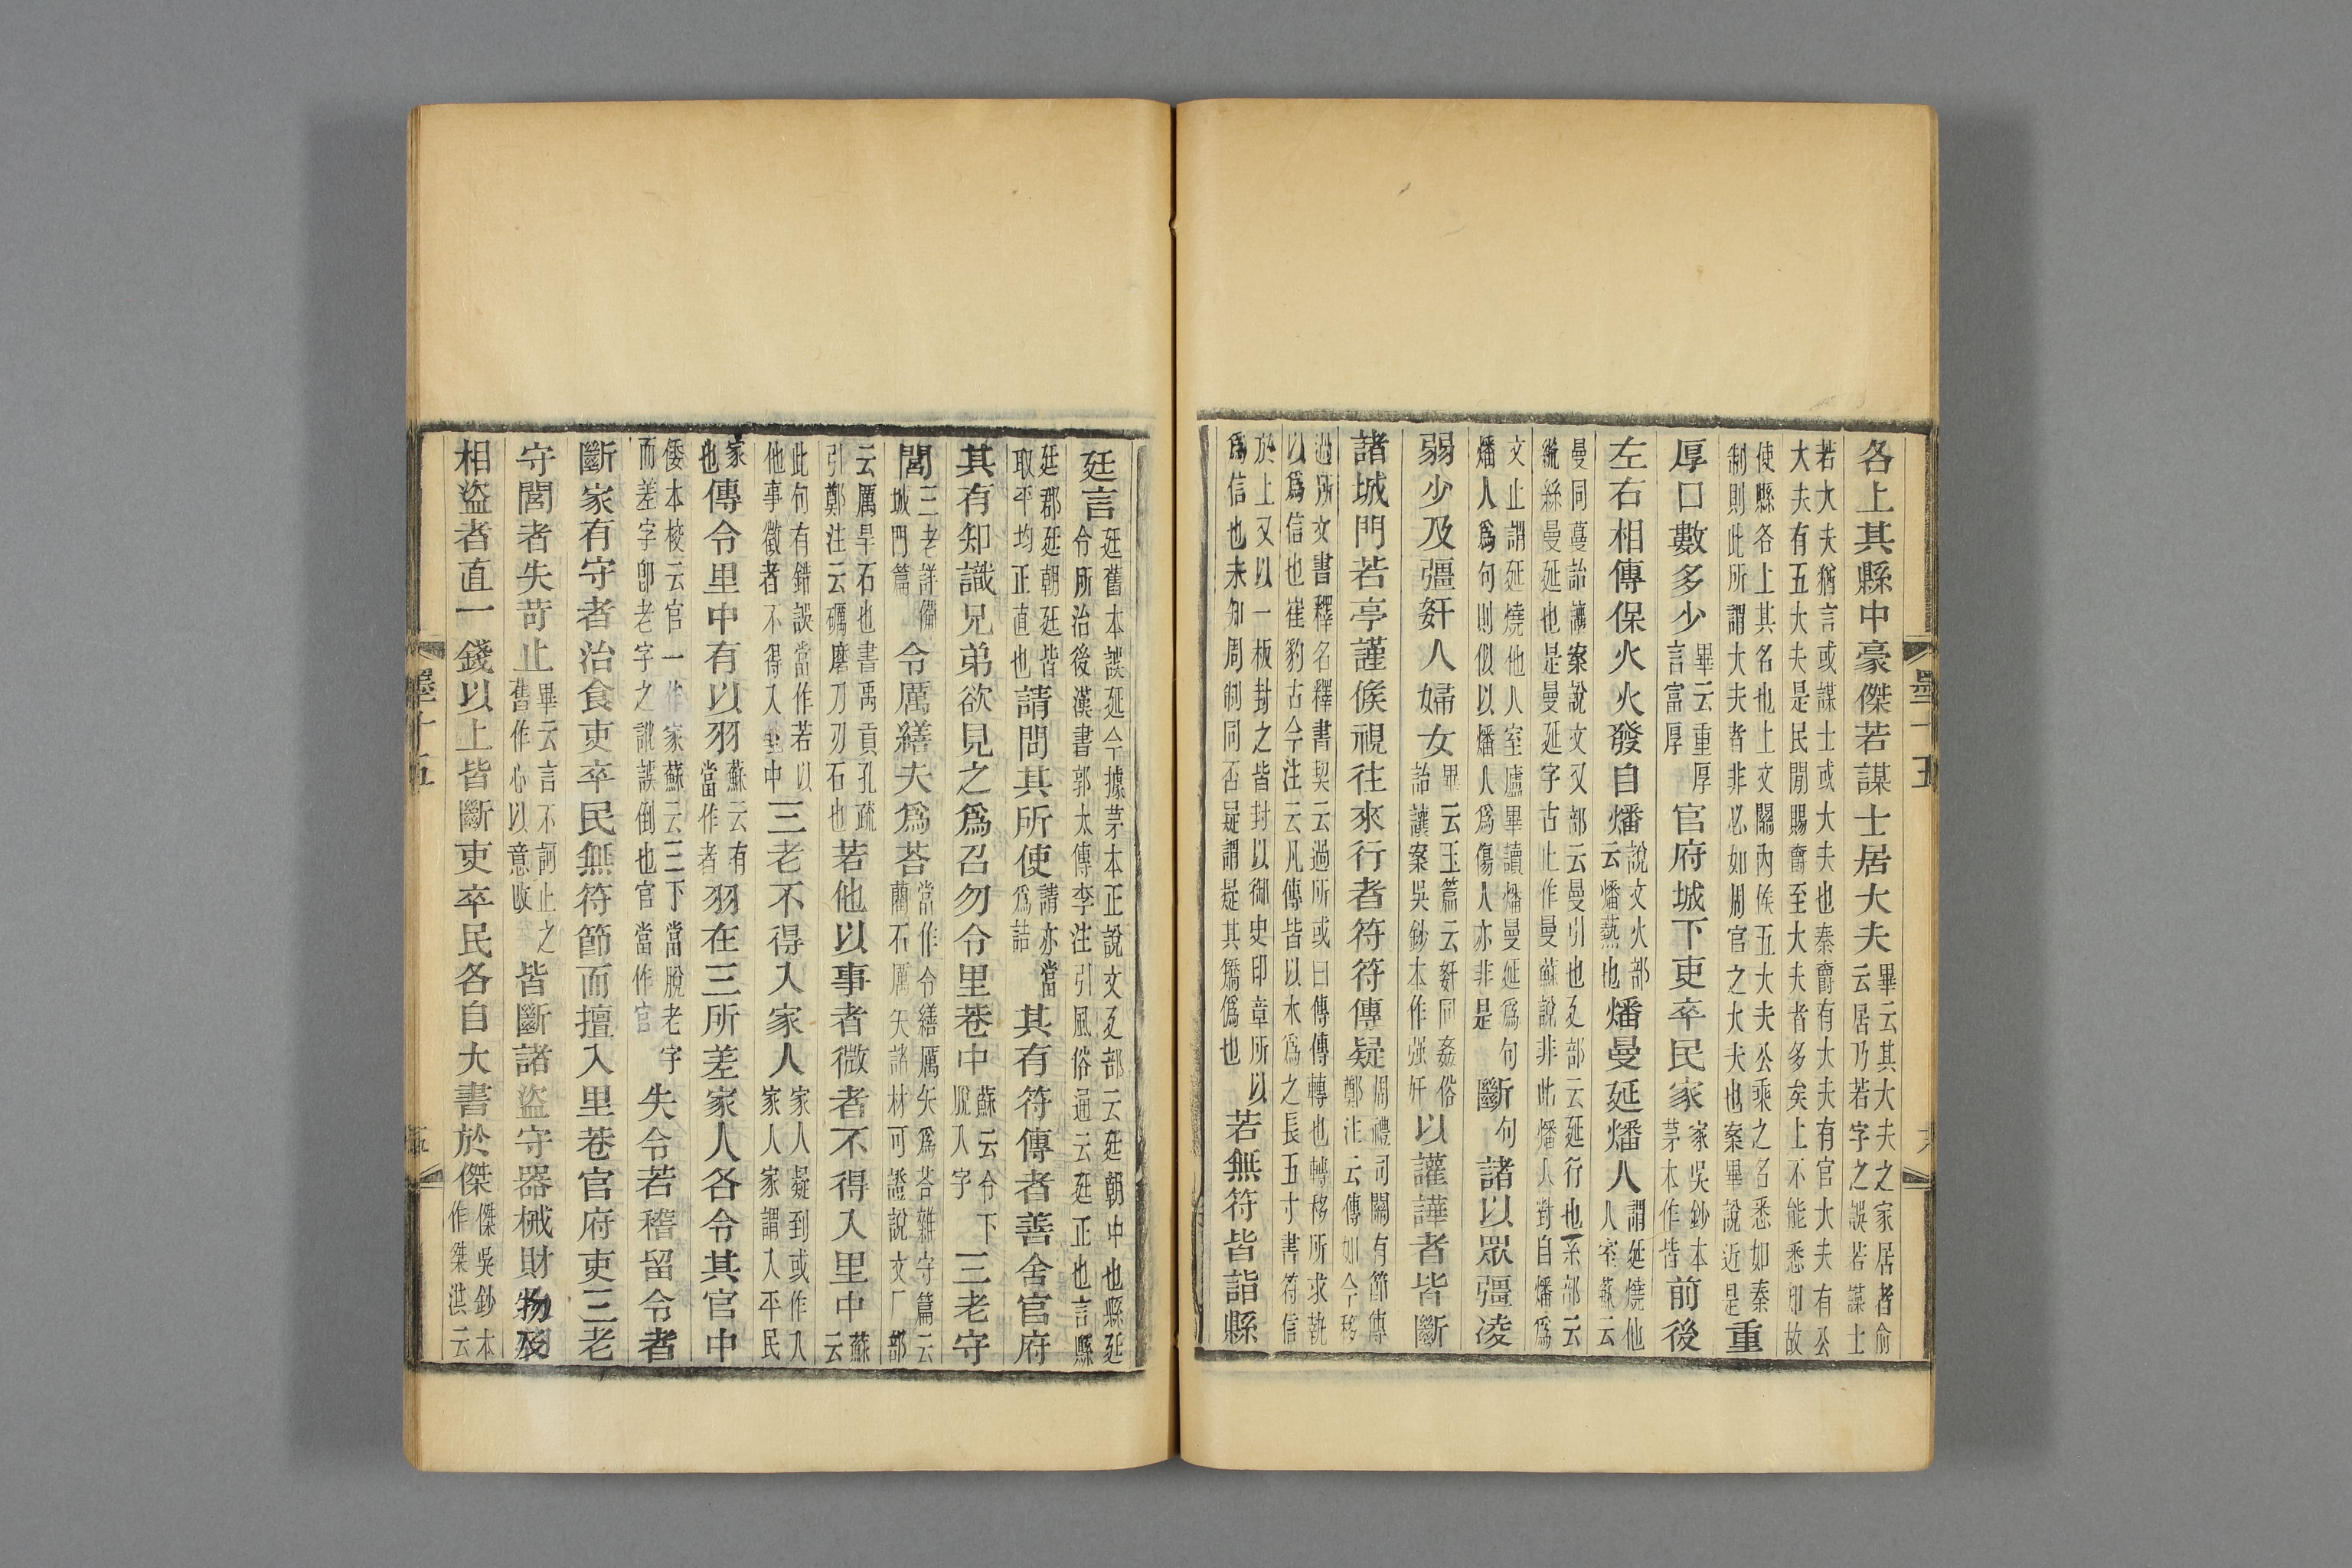 各上其縣中豪傑若謀士居大夫畢云其大夫之家居者俞云居乃若字之誤若謀士
若大夫猶言或謀士或大夫也秦爵有大夫有官大夫有公大夫有五大夫是民閒賜爵至大夫者多矣上不能悉知故
使縣各上其名也上文關內侯五大夫公乘之名悉如秦制則此所謂大夫者非必如周官之大夫也案畢說近是重
厚口數多少畢云重厚言富厚官府城下吏卒民家家吳鈔本茅本作皆前後
左右相傳保火火發自燔說文火部云燔爇也燔曼延燔人謂延燒他人室爇云
曼同蔓詒讓案說文又部云曼引也廴部云延行也糸部云絲曼延也是曼延字古止作曼蘇說非此燔人對自燔爲
文止謂延燒他人室廬畢讀燔曼延爲句燔人爲句則似以燔人爲傷人亦非是斷句諸以眾彊凌
弱少及彊姧人婦女畢云玉篇云姧同姦俗詒讓案吳鈔本作强奸以讙譁者皆斷
諸城門若亭謹候視往來行者符符傳疑周禮司關有節傳鄭注云傳如今移
過所文書釋名釋書契云過所或曰傳傳轉也轉移所求執以爲信也崔豹古今注云凡傳皆以木爲之長五寸書符信
於上又以一板封之皆封以御史印章所以爲信也未知周制同否疑謂疑其矯僞也若無符皆詣縣
廷言廷舊本誤延今據茅本正說文廴部云廷朝中也縣廷令所治後漢書郭太傳李注引風俗通云廷正也言縣
廷郡廷朝廷皆取平均正直也請問其所使請亦當爲詰其有符傳者善舍官府
其有知識兄弟欲見之爲召勿令里巷中蘇云令下脫入字三老守
閭三老詳備城門篇令厲繕夫爲荅當作令繕厲矢爲荅雜守篇云藺石厲矢諸材可證說文厂部
云厲旱石也書禹貢孔疏引鄭注云礪磨刀刃石也若他以事者微者不得入里中蘇云
此句有錯誤當作若以他事徵者不得入里中三老不得入家人家人疑到或作入家人家謂入平民
家也傳令里中有以羽蘇云有當作者羽在三所差家人各令其官中
倭本校云官一作家蘇云三下當脫老字而差字卽老字之訛誤倒也官當作宮失令若稽留令者
斷家有守者治食吏卒民無符節而擅入里巷官府吏三老
守閭者失苛止畢云言不訶止之舊作心以意改皆斷諸盜守器械財物及
相盜者直一錢以上皆斷吏卒民各自大書於傑傑吳鈔本作桀洪云
墨十五
五
墨十五
六